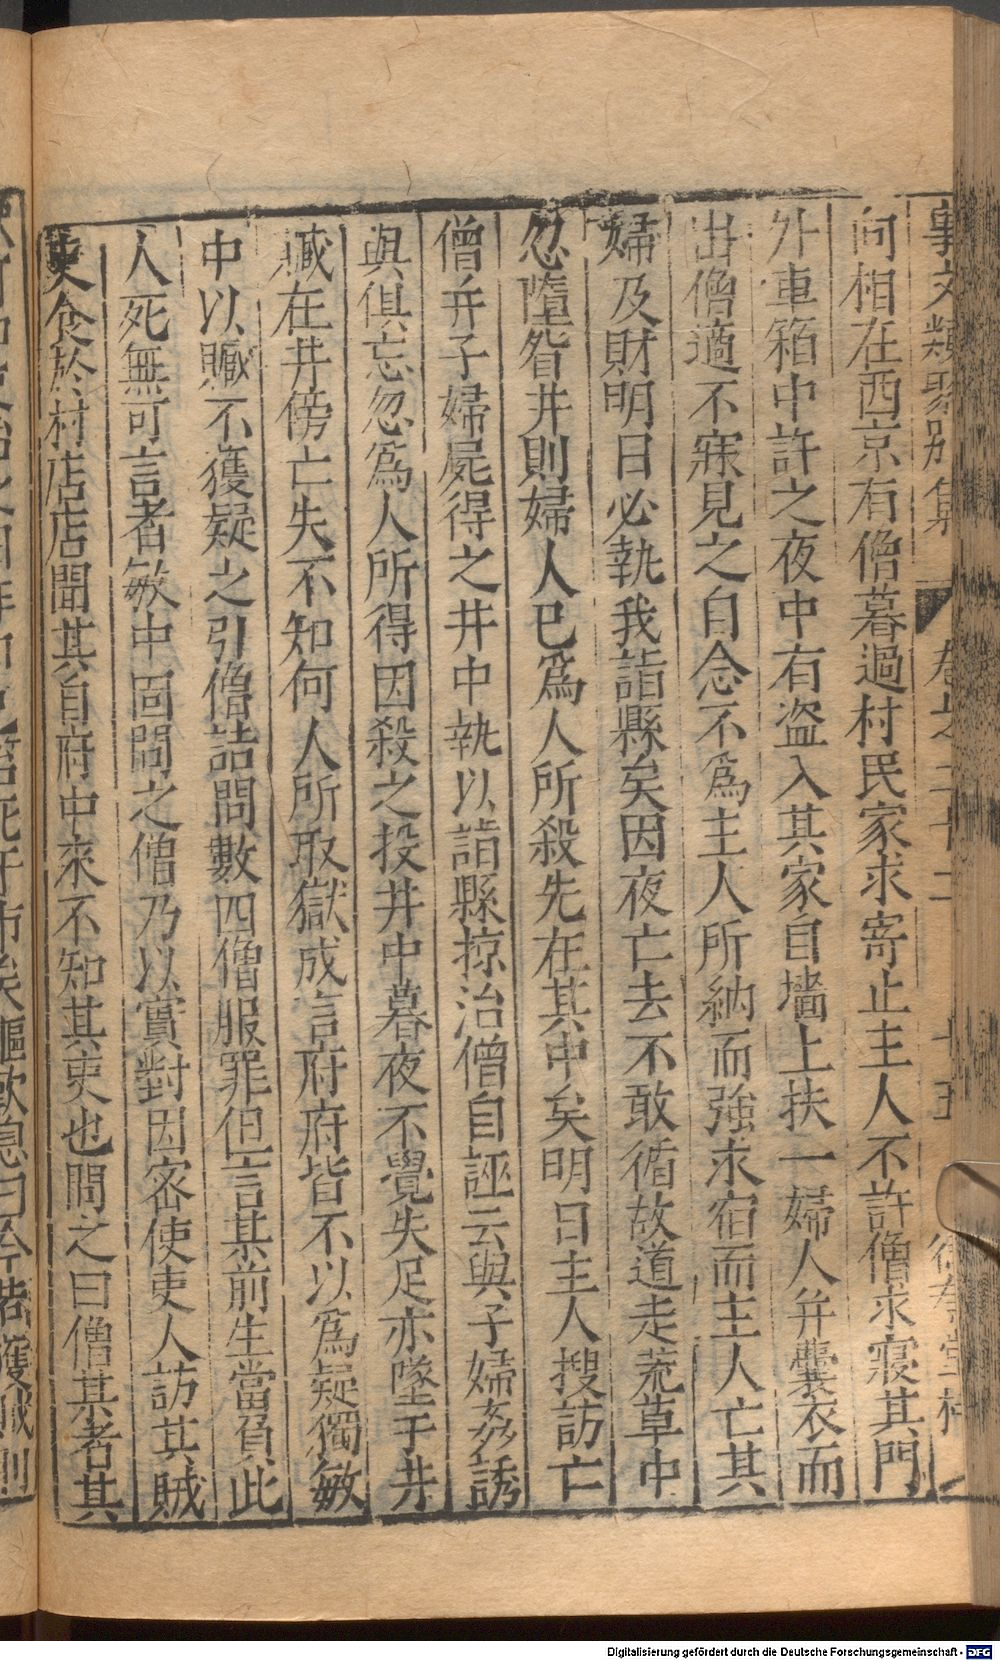 事文類聚別集 卷之二十二 十五
向相在西京有僧暮過村民家求寄止主人不許僧求寢其門
外車箱中許之夜中有盗入其家自墻上扶一婦人并囊衣而
出僧適不寐見之自念不爲主人所納而強求宿而主人亡其
婦及財明日必執我詣縣矣因夜亡去不敢循故道走荒草中
忽墮眢井則婦人已爲人所殺先在其中矣明日主人搜訪亡
僧并子婦屍得之井中執以詣縣掠治僧自誣云與子婦姦誘
與俱忘忽爲人所得因殺之投井中暮夜不覺失足亦墜于井
贓在井傍亡失不知何人所取獄成言府府皆不以爲疑獨敏
中以贓不獲疑之引僧詰問數四僧服罪但言某前生當負此
人死無可言者敏中固問之僧乃以實對因密使吏人訪其賊
吏食於村店店聞其自府中來不知其吏也問之曰僧某者其
Digitalisierung gefördert durch die Deutsche Forschungsgemeinschaft - DFG